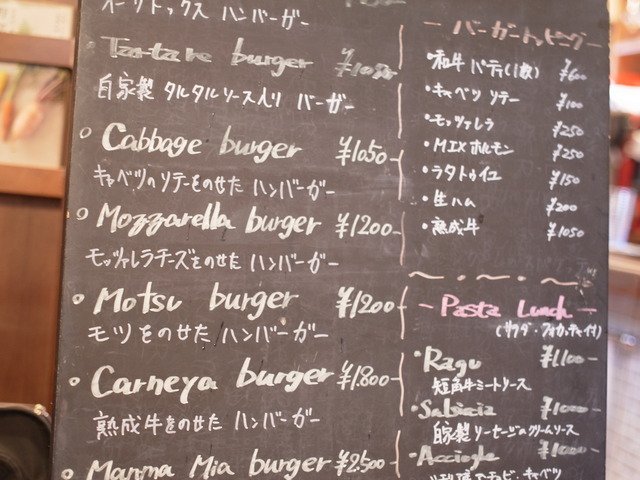 オーソドックス ハンバーガー
Tartare burger ¥1050
自家製 タルタルソース入り バーガー
Cabbage burger ¥1050-
キャベツのソテーをのせた ハンバーガー
Mozzarella burger ¥1200-
モッツァレラチーズをのせた ハンバーガー
Motsu burger ¥1200
モツをのせた ハンバーガー
Carneya burger ¥1.800-
熟成牛をのせた ハンバーガー
Mamma Mia burger ¥2.500-
- バーガートッピング -
・和牛 パティ(1枚) ¥600
・キャベツ ソテー ¥100
・モッツァレラ ¥250
・MIXホルモン ¥250
・ラタトゥイユ ¥150
・生ハム ¥200
・熟成牛 ¥1050
- Pasta Lunch -
(サラダ・フォカッチャ付)
・Ragu ¥1,100-
短角牛ミートソース
・Salsiccia ¥1000-
自家製ソーセージのクリームソース
・Acciughe ¥1000-
アンチョビ・キャベツ